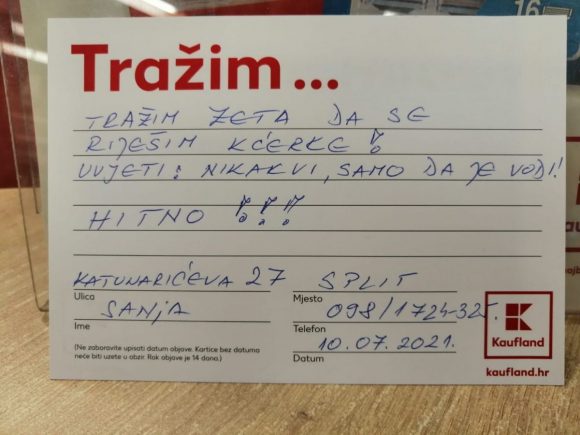 16
Tražim...
TRAŽIM ZETA DA SE
RIJEŠIM KĆERKE!
UVJETI: NIKAKVI, SAMO DA JE VODI!
HITNO !!!
KATUNARIĆEVA 27 SPLIT
Ulica Mjesto
SANJA 098/1724-325.
Ime Telefon
10.07.2021.
Datum
(Ne zaboravite upisati datum objave. Kartice bez datuma
neće biti uzete u obzir. Rok objave je 14 dana.)
Kaufland
kaufland.hr